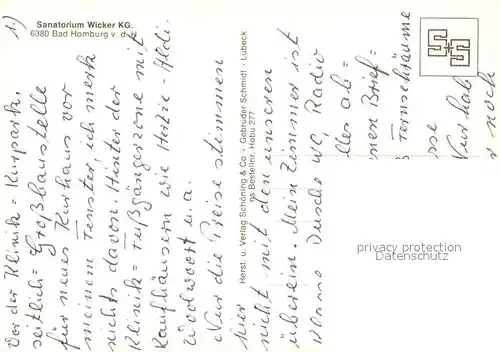 1.)
Sanatorium Wicker KG.
6380 Bad Homburg v. d.
Vor der Klinik = Kurpark,
seitlich = Großbaustelle
für neues Kurhaus vor
meinem Fenster, ich merk
nichts davon. Hinter der
Klinik = Fußgängerzone mit
Kaufhäusern wie Hertie - Aldi
Woolwoort u.a.
Nur die Preise stimmen
hier
nicht mit den unseren
überein. Mein Zimmer ist
Klasse Dusche WC, Radio
lles ab =
nen Brief =
Fernsehräume
sse
Nur hab
noch
Herst. u. Verlag Schöning & Co + Gebrüder Schmidt - Lübeck
Bestellnr. Hobu 277
privacy protection
Datenschutz